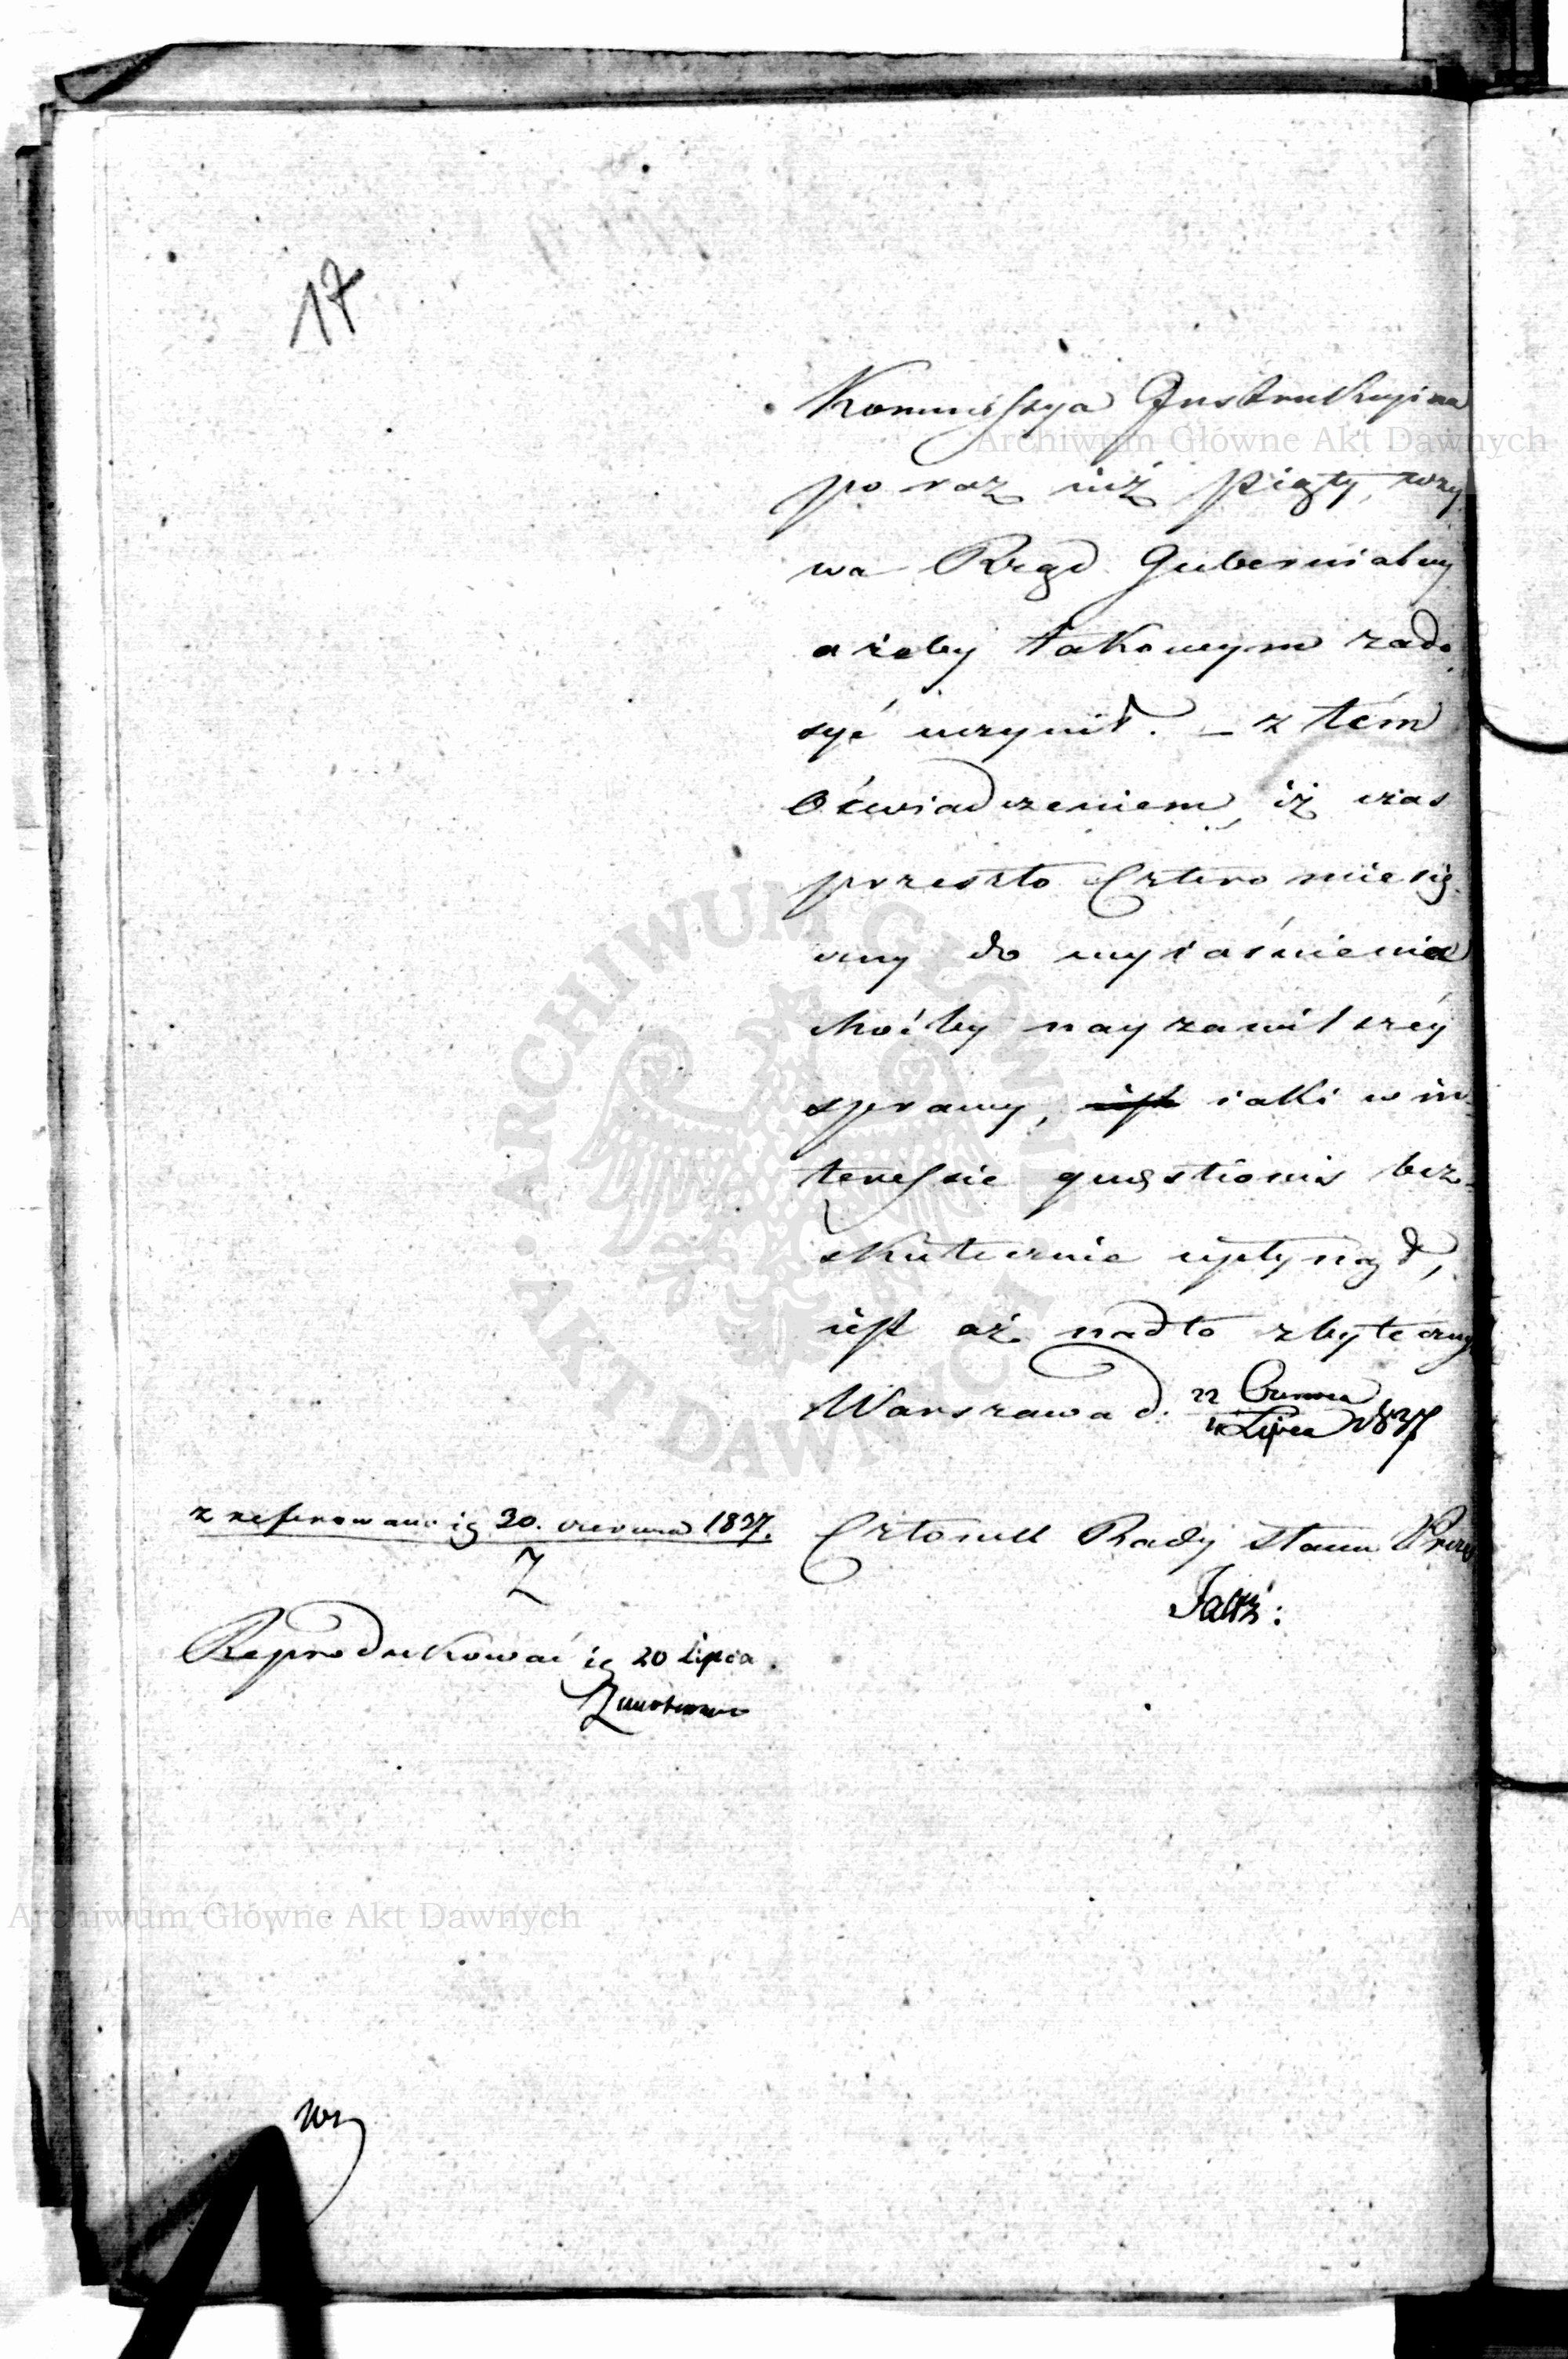 17
Kommissya Instrukcyina
po raz iuż piąty, wzy
wa Rząd Gubernialny
ażeby takowym zado
syć uczynił. – z tém
Oświadczeniem, iż czas
przeszło Cztero miesię
czny do wyiaśnienia
choćby nayzawilszéy
sprawy, iaki w in-
teressie quęstionis bez-
skutecznie upłynął,
iest aż nadto zbyteczny
Warszawa d. 22 Czerwca
4 Lipca 1837
Członek Rady Stanu Preze
z referowano ię 30. czerwca 1837.
Z
Reprodukować ię 20 Lipca
wz
Archiwum Główne Akt Dawnych
ARCHIWUM GŁÓWNE AKT DAWNYCH
Archiwum Główne Akt Dawnych